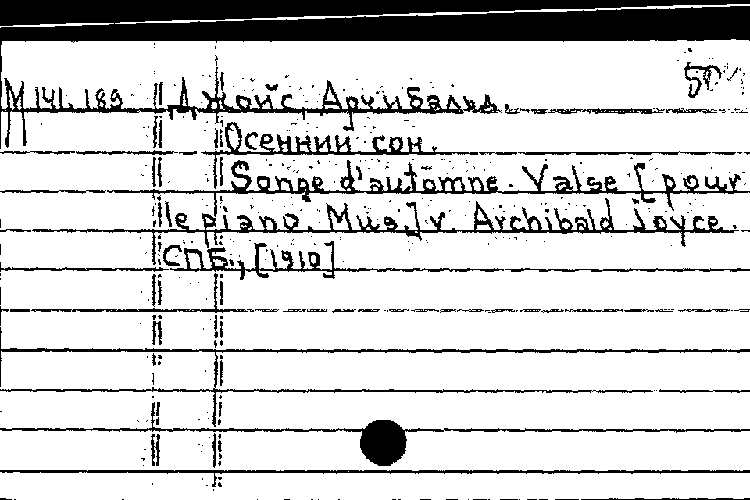 М 141.189 Джойс, Арчибальд.
Осенний сон.
Songe d'automne. Valse [pour
le piano. Mus.] v. Archibald Joyce.
СПБ., [1910]